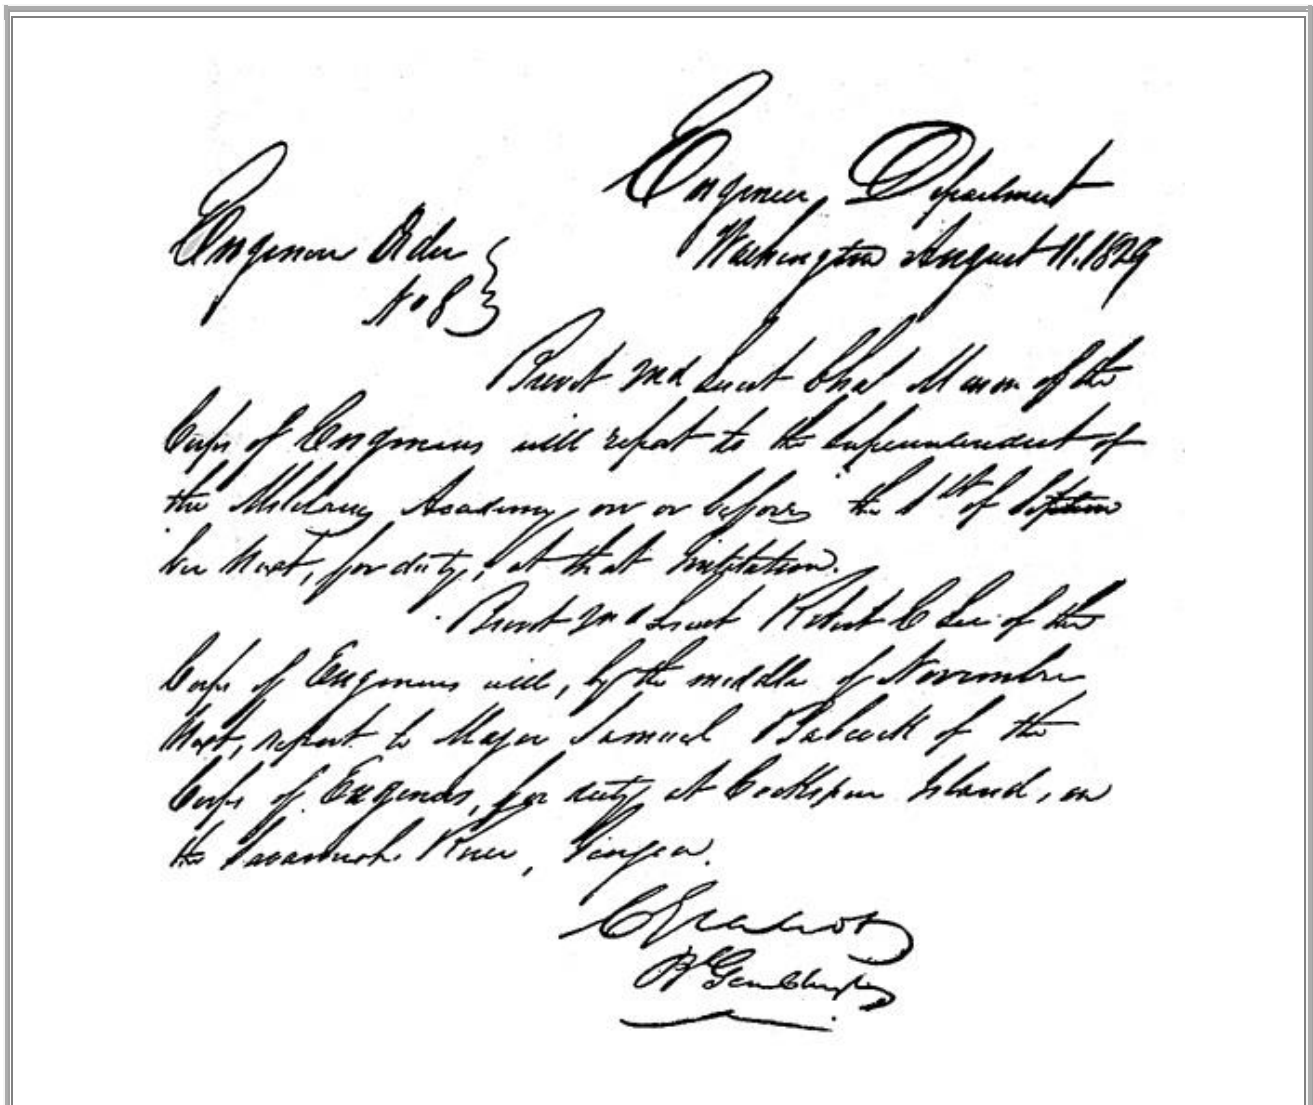 Engineer Department
Washington August 11. 1829
Engineer Order
No 8
Brevt 2nd Lieut Chas Mason of the
Corps of Engineers will report to the Superintendent of
the Military Academy on or before the 1st of Septem
ber Next, for duty, at that institution.
Brevt 2nd Lieut Robert E Lee of the
Corps of Engineers will, by the middle of November
Next, report to Major Samuel Babcock of the
Corps of Engineers, for duty at Cockspur Island, on
the Savannah River, Georgia.
C Gratiot